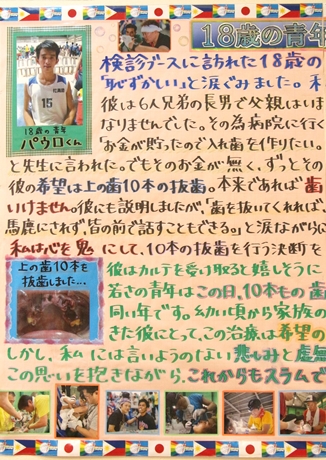 18歳の青年
検診ブースに訪れた18歳の
「恥ずかしい」と涙ぐみました。
彼は6人兄弟の長男で父親はいま
なりませんでした。その為病院に行く
「お金が貯ったので入れ歯を作りたい。
と先生に言われた。でもそのお金が無く、ずっとその
彼の希望は上の歯10本の抜歯。本来であれば歯
いけません。彼にも説明しましたが、「歯を抜いてくれれば、
馬鹿にされず、皆の前で話すこともできる。」と涙ながらに
私は心を鬼にして、10本の抜歯を行う決断を
18歳の青年
パウロくん
15
上の歯10本を
抜歯しました…
彼はカルテを受け取ると嬉しそうに
若さの青年はこの日、10本もの歯
同い年です。幼い頃から家族の
きた彼にとって、この治療は希望の
しかし、私には言いようのない悲しみと虚無
この思いを抱きながら、これからもスラムで